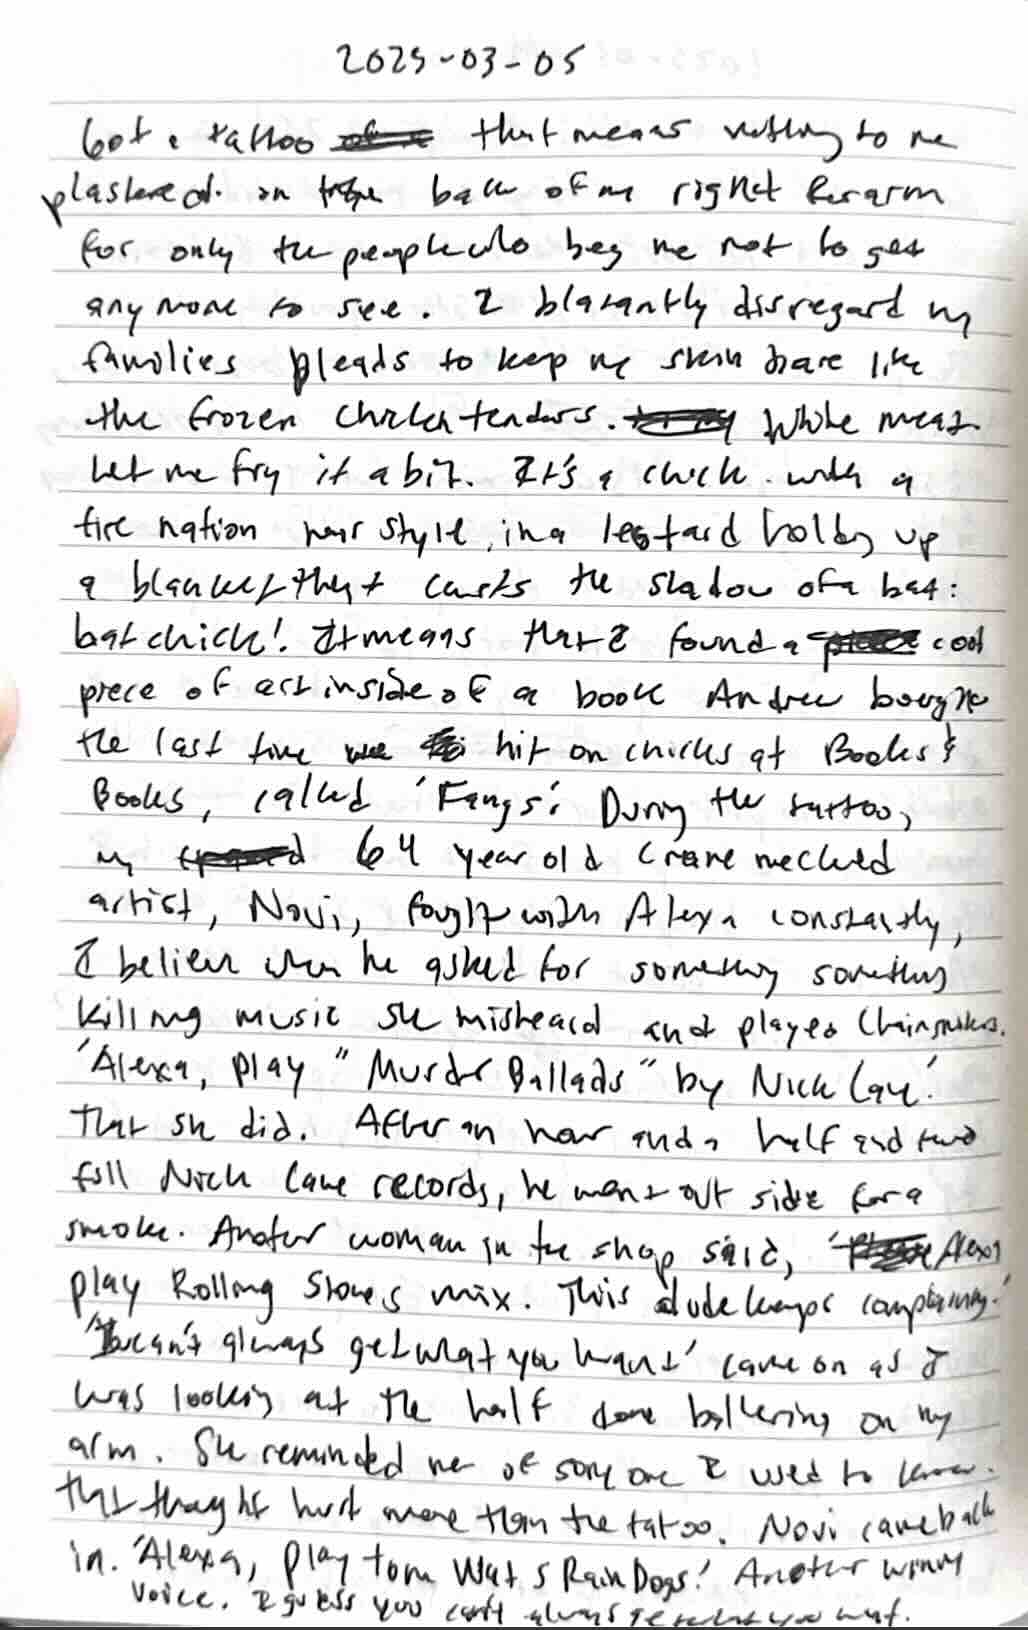 2025-03-05
Got a tattoo that means nothing to me
plastered on the back of my right forearm
for only the people who beg me not to get
any more to see. I blatantly disregard my
families pleads to keep my skin bare like
the frozen chicken tenders. White meat.
Let me fry it a bit. It's a chick with a
fire nation hair style, in a leotard holding up
a blanket that casts the shadow of a bat:
bat chick! It means that I found a cool
piece of art inside of a book Andrew bought
the last time we hit on chicks at Books &
Books, called 'Fangs'. During the tattoo,
my 64 year old crane necked
artist, Novi, fought with Alexa constantly,
I believe when he asked for something something
killing music she misheard and played Chainsmokers.
'Alexa, play "Murder Ballads" by Nick Cave.'
That she did. After an hour and a half and two
full Nick Cave records, he went out side for a
smoke. Another woman in the shop said, 'Alexa
play Rolling Stones mix. This dude keeps complaining.'
'You can't always get what you want' came on as I
was looking at the half done ballerina on my
arm. She reminded me of someone I used to know.
That thought hurt more than the tattoo. Novi came back
in. 'Alexa, play Tom Waits Rain Dogs.' Another whiny
voice. I guess you can't always get what you want.